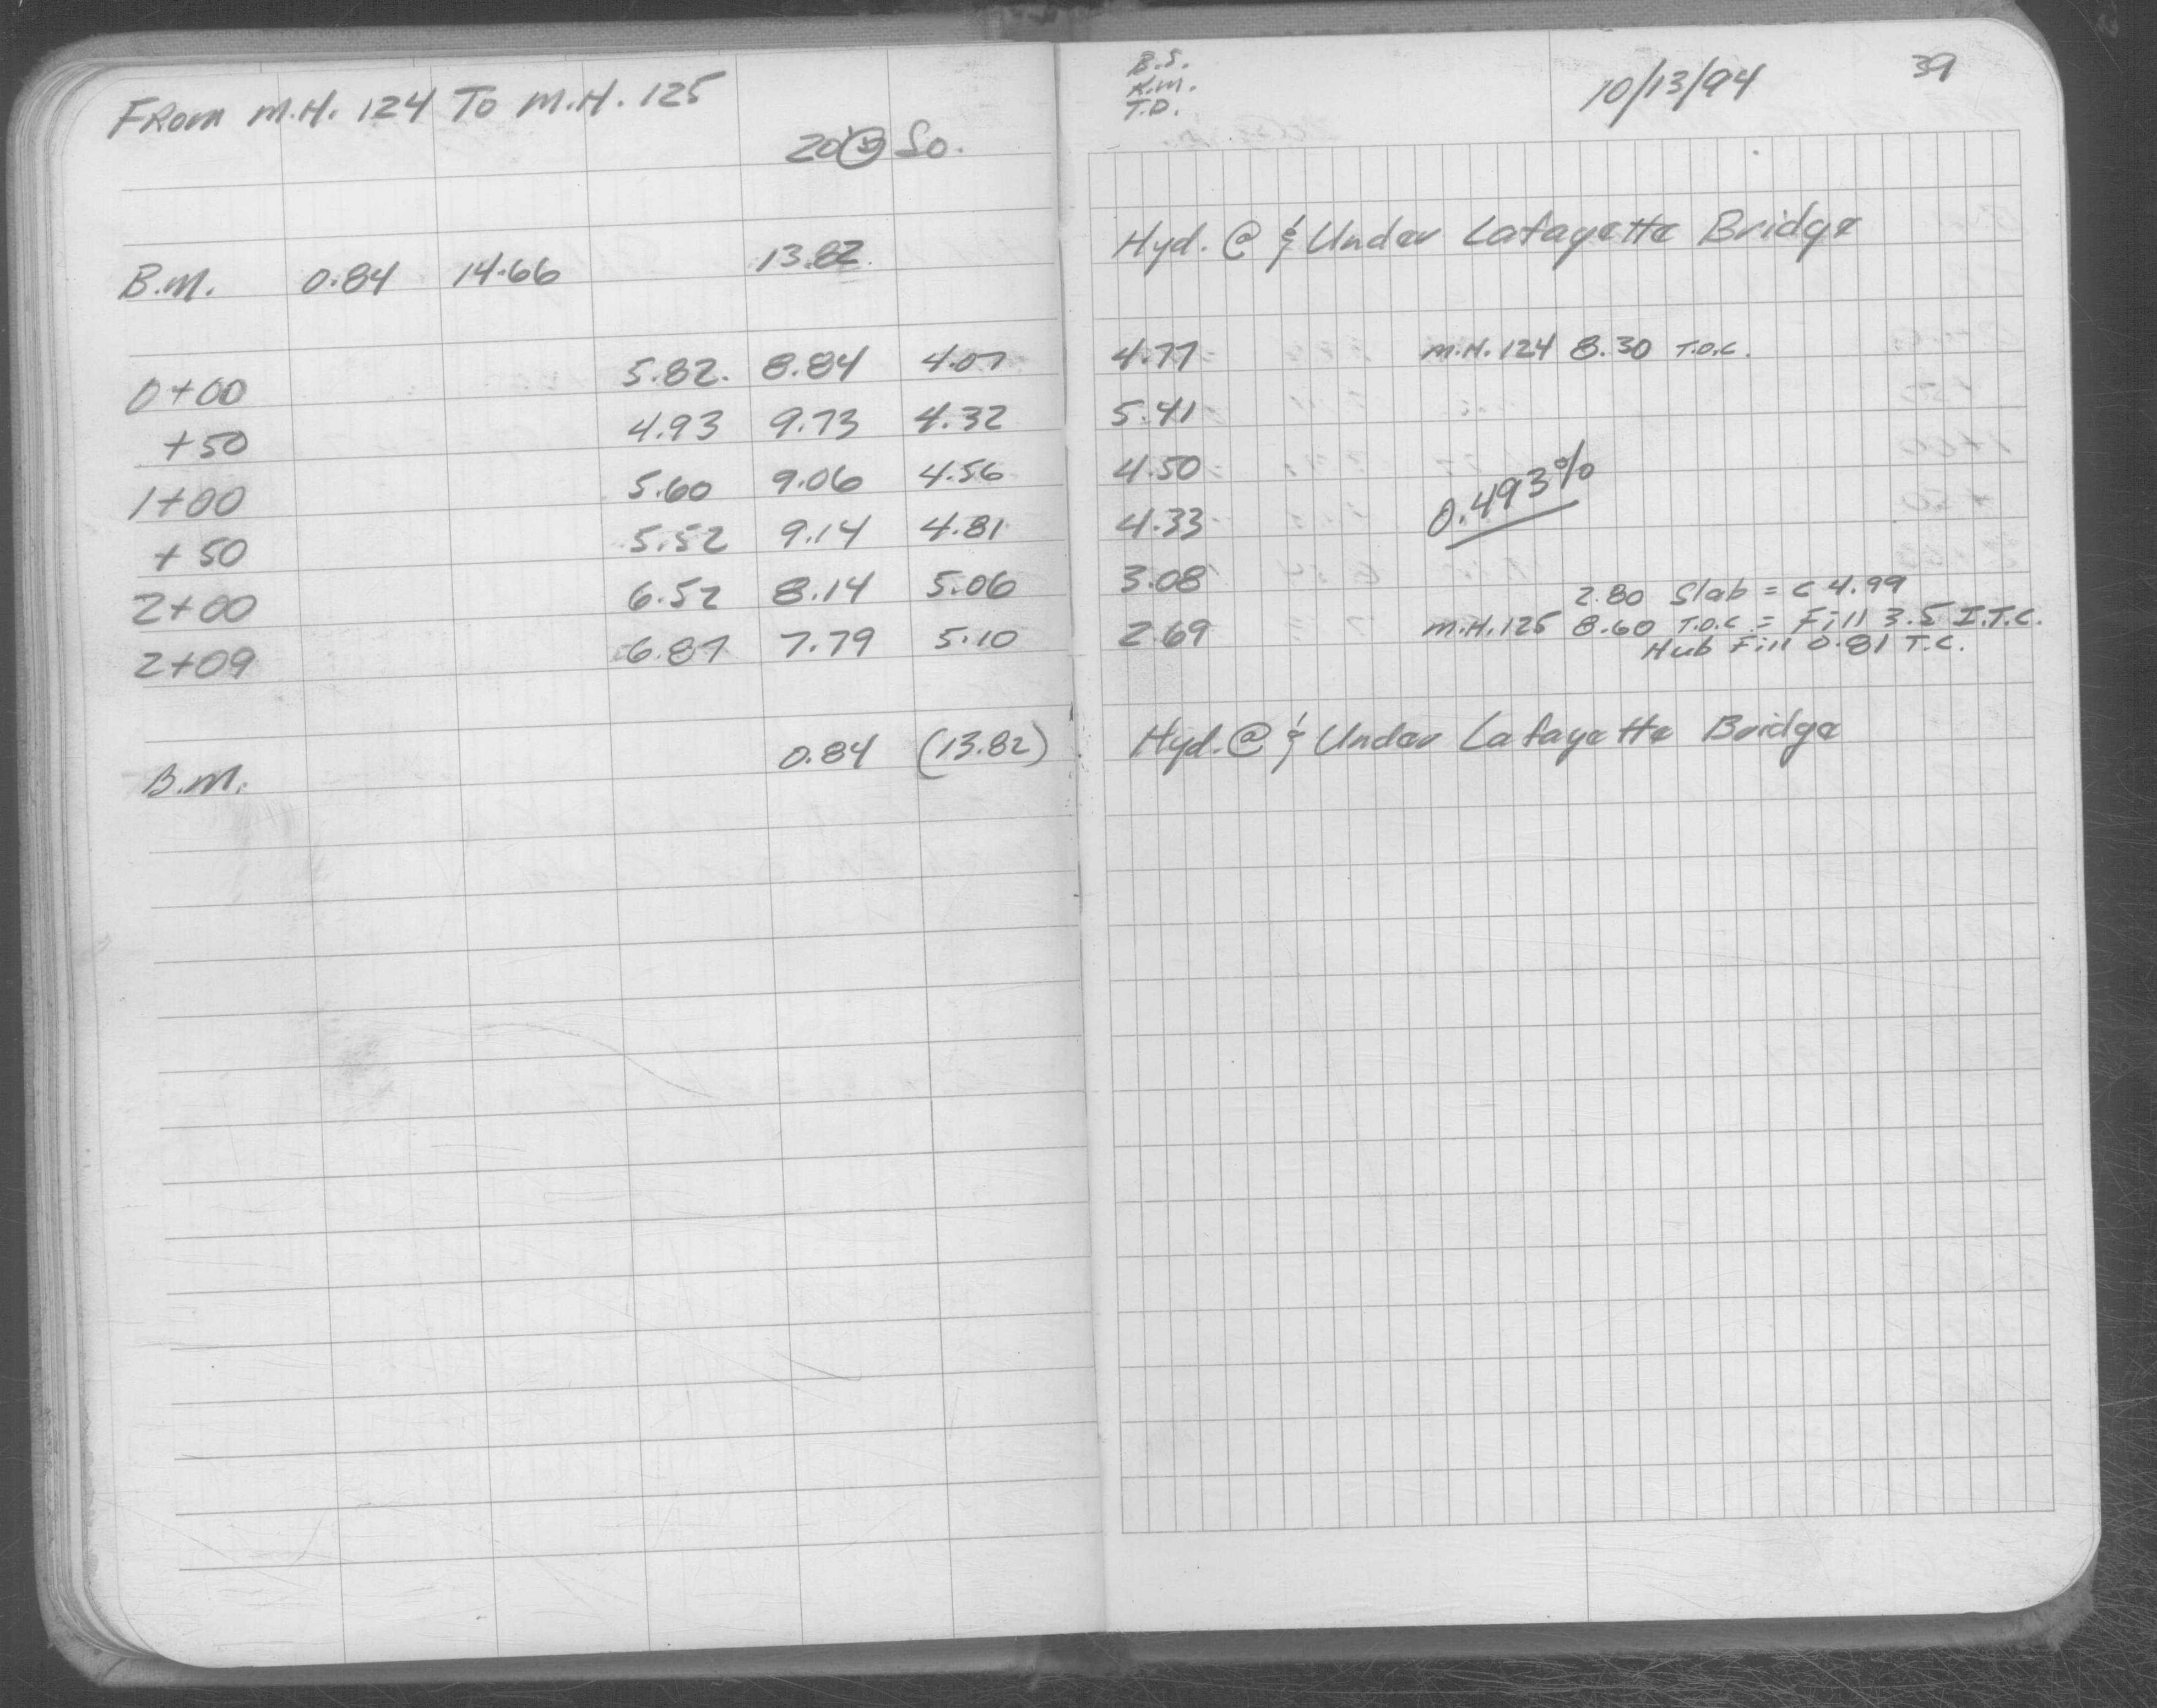 From M.H. 124 To M.H. 125
20' So.
B.M. 0.84 14.66 13.82
0+00 5.82 8.84 4.07
+50 4.93 9.73 4.32
1+00 5.60 9.06 4.56
+50 5.52 9.14 4.81
2+00 6.52 8.14 5.06
2+09 6.87 7.79 5.10
B.M. 0.84 (13.82)
B.S.
K.M.
T.D.
10/13/94 39
Hyd. @ & Under Lafayette Bridge
4.77 M.H. 124 8.30 T.O.C.
5.41
4.50
0.493%
4.33
3.08 2.80 Slab = C 4.99
2.69 M.H. 125 8.60 T.O.C. = Fill 3.5 I.T.C.
Hub Fill 0.81 T.C.
Hyd. @ & Under Lafayette Bridge